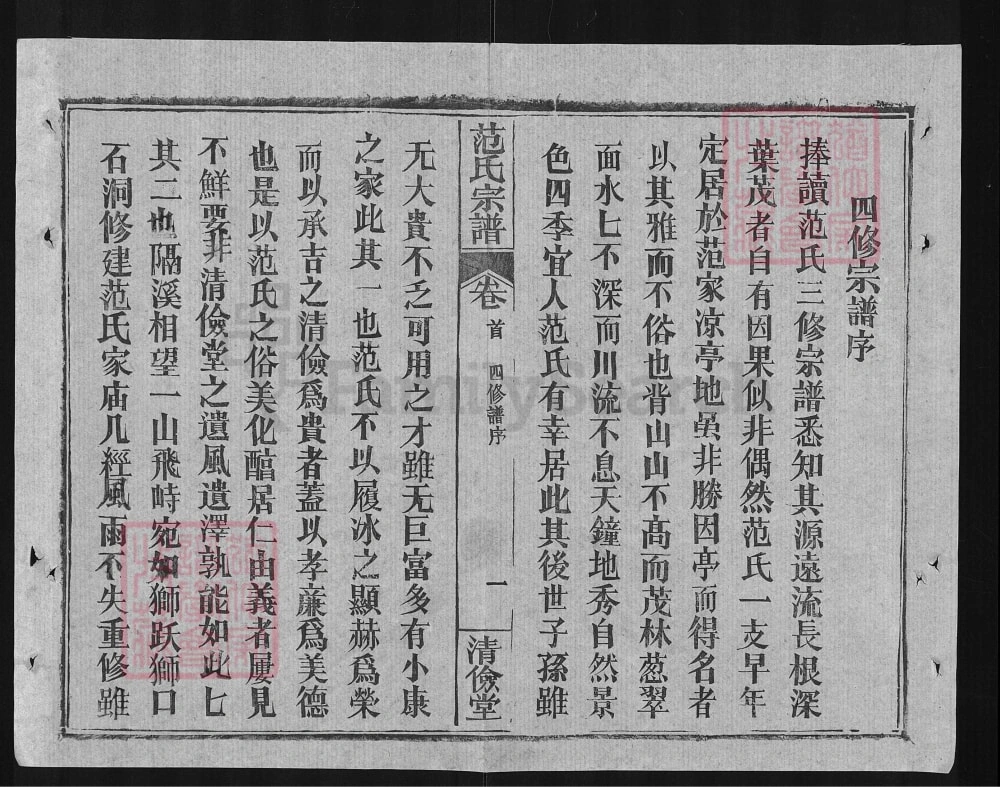 四修宗譜序
捧讀范氏三修宗譜悉知其源遠流長根深
葉茂者自有因果似非偶然范氏一支早年
定居於范家凉亭地虽非勝因亭而得名者
以其雅而不俗也背山山不髙而茂林葱翠
面水七不深而川流不息天鐘地秀自然景
色四季宜人范氏有幸居此其後世子孫雖
范氏宗譜
卷首 四修譜序
一
清儉堂
无大貴不乏可用之才雖无巨富多有小康
之家此其一也范氏不以履冰之顯赫爲榮
而以承吉之清儉爲貴者蓋以孝亷爲美德
也是以范氏之俗美化醕居仁由義者屢見
不鮮要非清儉堂之遺風遺澤孰能如此七
其二也隔溪相望一山飛峙宛如獅跃獅口
石洞修建范氏家庙几經風雨不失重修雖
FamilySearch